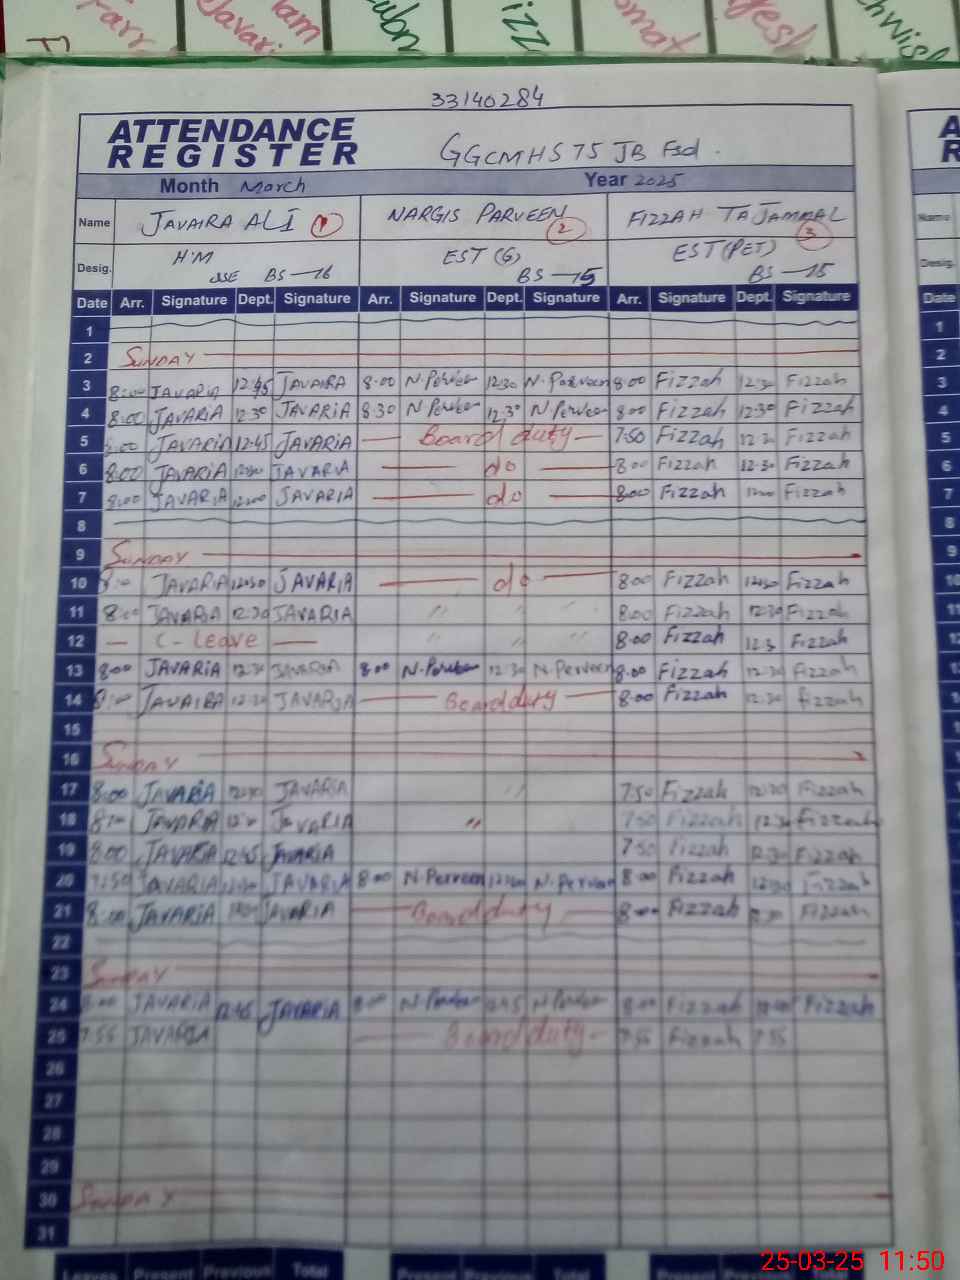 33140284
ATTENDANCE REGISTER GGCMHS 75 JB Fsd.
Month March Year 2025
Name JAVAIRA ALI 1 NARGIS PARVEEN 2 FIZZAH TAJAMMAL 3
Desig. H.M SSE BS-16 EST (G) BS-15 EST (PET) BS-15
Date Arr. Signature Dept. Signature Arr. Signature Dept. Signature Arr. Signature Dept. Signature
1
2 SUNDAY
3 8:00 JAVARIA 12:45 JAVAIRA 8.00 N.Perveen 12:30 N.Parveen 8.00 Fizzah 12:30 Fizzah
4 8:00 JAVARIA 12.30 JAVARIA 8.30 N.Perveen 12.30 N.Perveen 8.00 Fizzah 12:30 Fizzah
5 8:00 JAVARIA 12:45 JAVARIA Board duty 7.50 Fizzah Fizzah
6 8:00 JAVARIA JAVARIA do 8.00 Fizzah 12.30 Fizzah
7 8:00 JAVARIA 12:00 JAVARIA do 8.00 Fizzah Fizzah
8
9 SUNDAY
10 JAVARIA 12:30 JAVARIA do 8.00 Fizzah 12:30 Fizzah
11 8:00 JAVARIA 12:30 JAVARIA " " " 8.00 Fizzah 12.30 Fizzah
12 C-Leave " " " 8.00 Fizzah 12.3 Fizzah
13 8:00 JAVARIA 12:30 JAVARIA 8.00 N.Perveen 12:30 N.Perveen 8.00 Fizzah 12:30 Fizzah
14 JAVAIRA 12:30 JAVARIA Board duty 8.00 Fizzah 12:30 Fizzah
15
16 Sunday
17 8:00 JAVARIA JAVARIA " 7.50 Fizzah 12:30 Fizzah
18 JAVARIA JAVARIA " 7.50 Fizzah 12:30 Fizzah
19 8:00 JAVARIA 12:45 JAVARIA 7.50 Fizzah 12.30 Fizzah
20 7:50 JAVARIA JAVARIA 8.00 N.Perveen N.Perveen 8.00 Fizzah 12:30 Fizzah
21 8:00 JAVARIA JAVARIA Board duty 8.00 Fizzah Fizzah
22
23 Sunday
24 8:00 JAVARIA 12:45 JAVARIA 8:00 N.Perveen 12:45 N.Perveen 8.00 Fizzah Fizzah
25 7:55 JAVARIA Board duty 7:55 Fizzah 7:55
26
27
28
29
30 SUNDAY
31
Present Previous Total Present Previous Total Present Previous
25-03-25 11:50